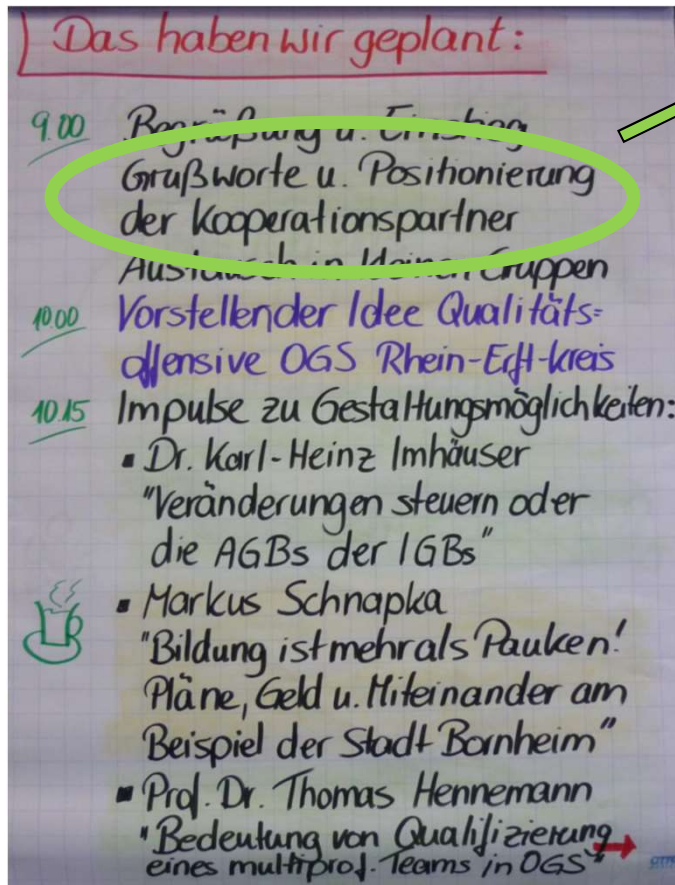 Das haben wir geplant:
9.00 Begrüßung u. Einstieg
Grußworte u. Positionierung
der Kooperationspartner
Austausch in kleinen Gruppen
10.00 Vorstellen der Idee Qualitäts=
offensive OGS Rhein-Erft-Kreis
10.15 Impulse zu Gestaltungsmöglichkeiten:
▪ Dr. Karl-Heinz Imhäuser
"Veränderungen steuern oder
die AGBs der IGBs"
▪ Markus Schnapka
"Bildung ist mehr als Pauken!
Pläne, Geld u. Miteinander am
Beispiel der Stadt Bornheim"
▪ Prof. Dr. Thomas Hennemann
"Bedeutung von Qualifizierung
eines multiprof. Teams in OGS"